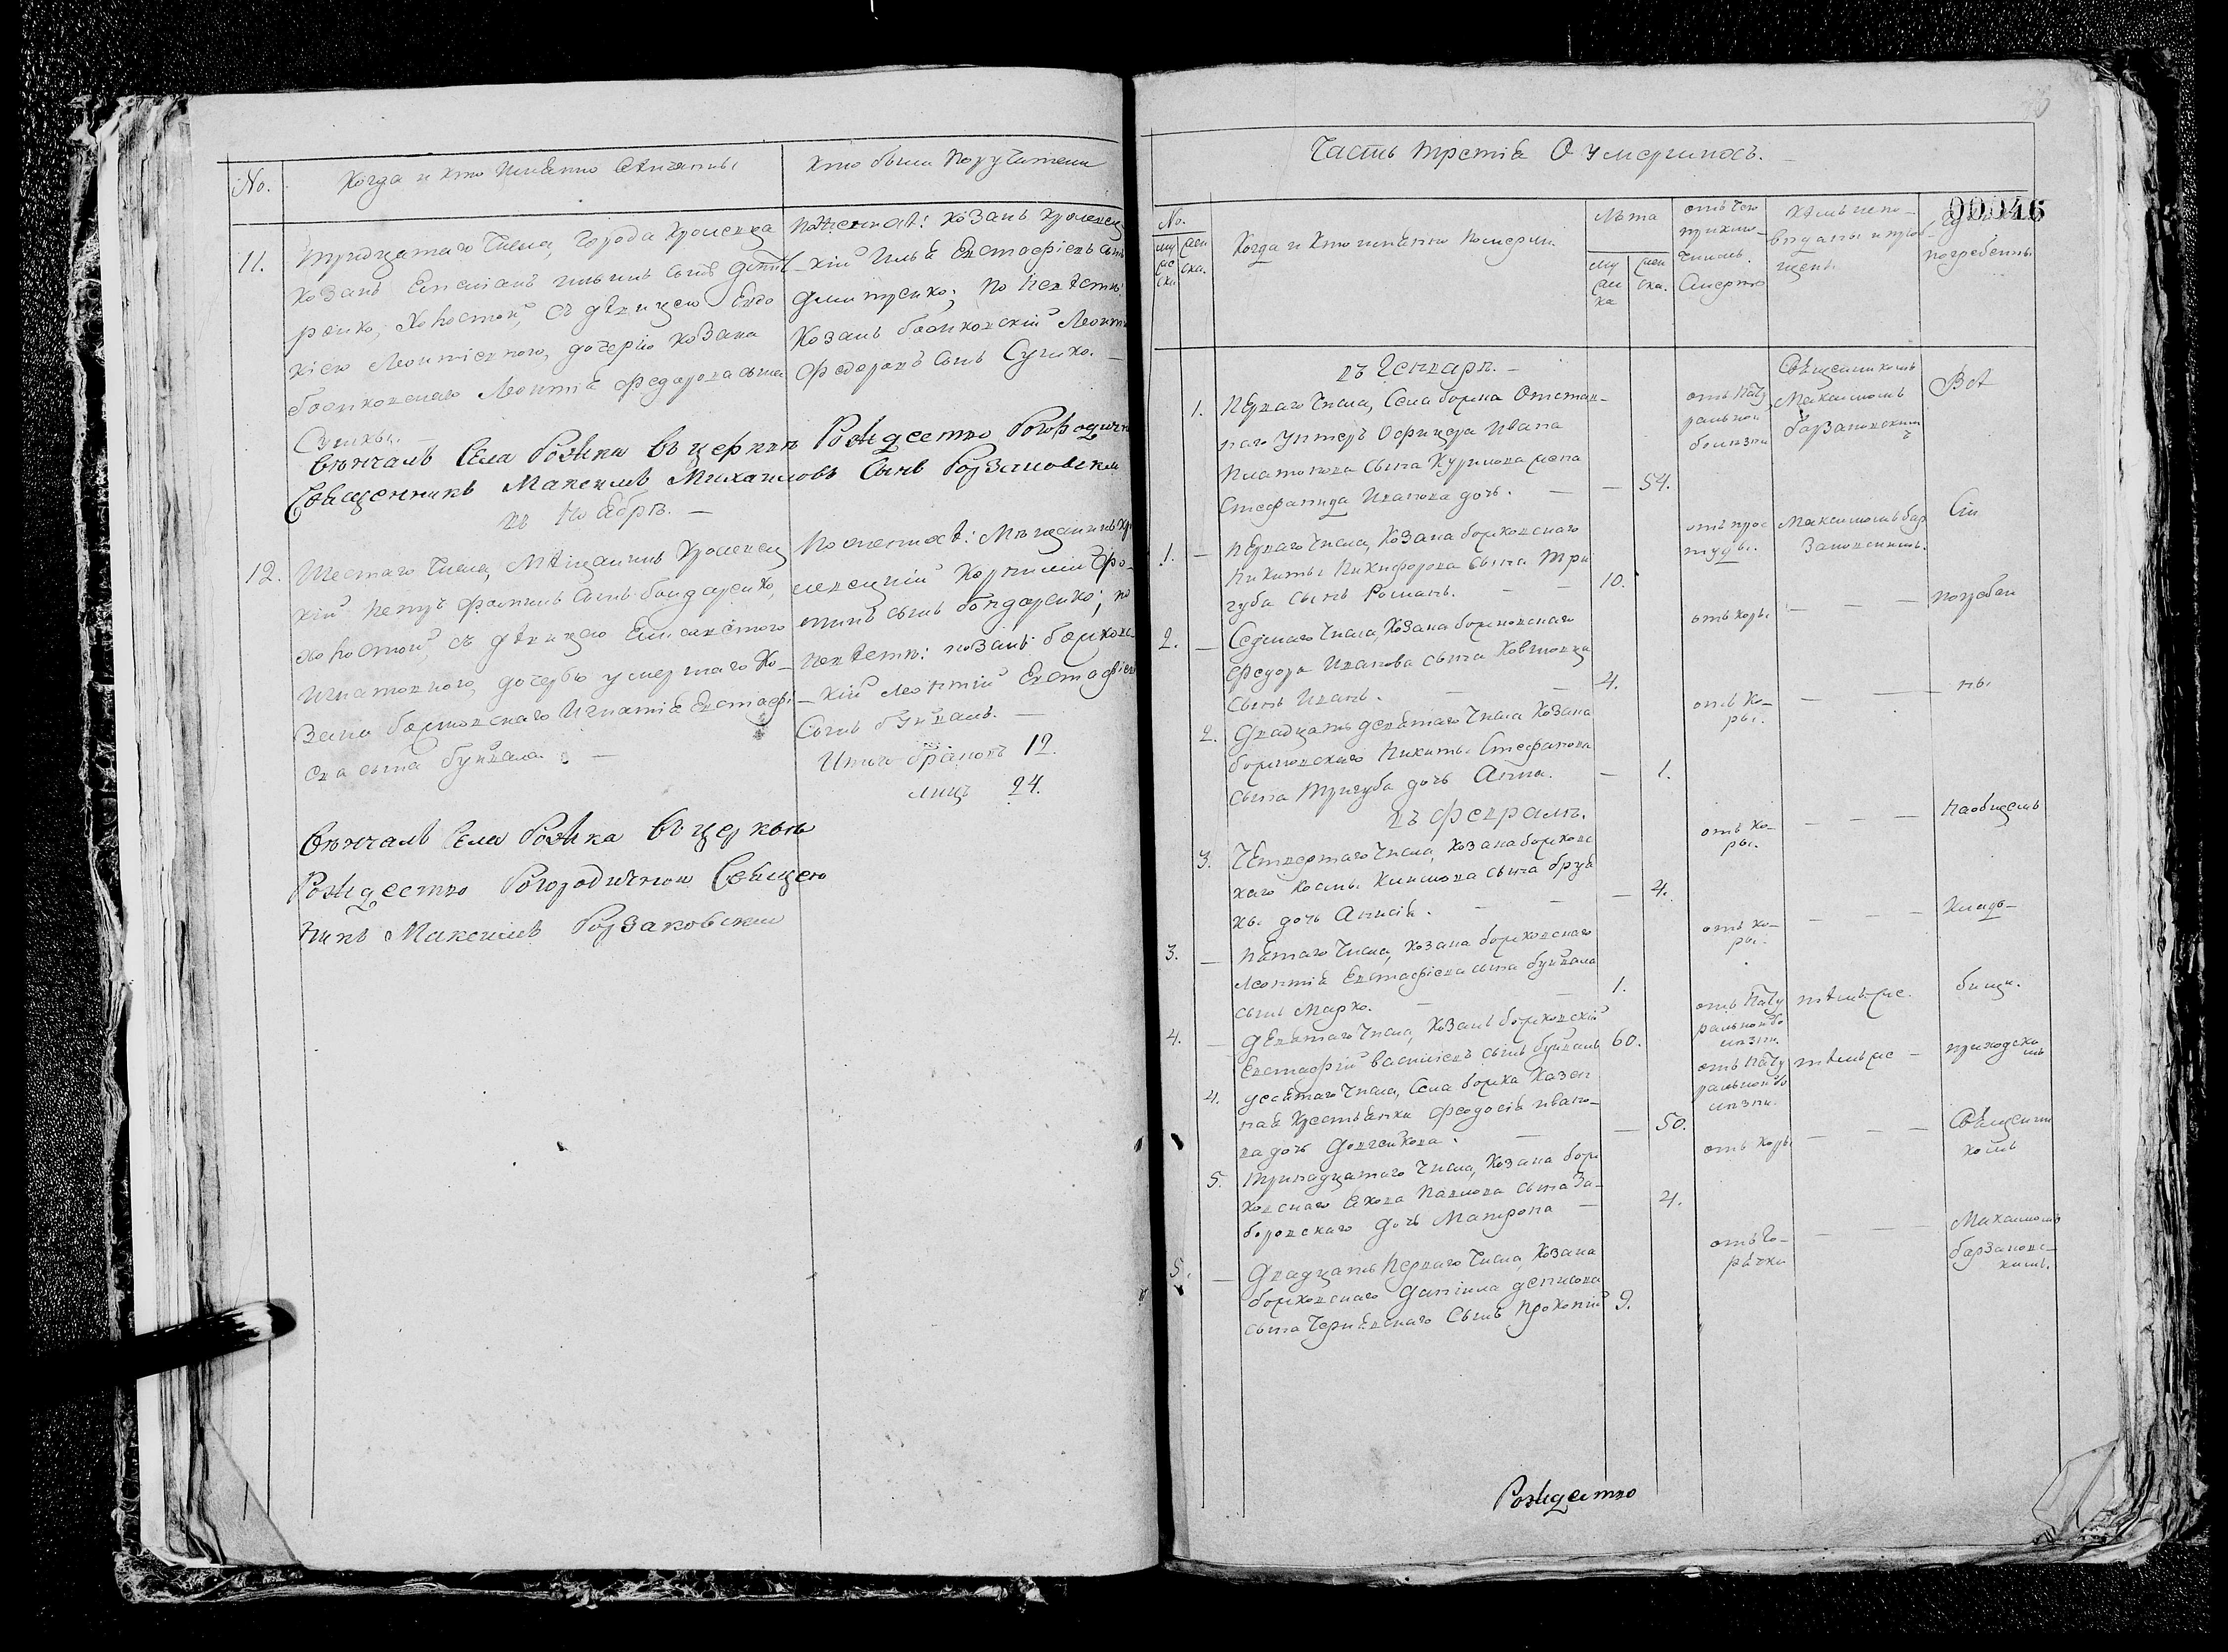 No.
Когда и кто имѣнно вѣнчаны
кто были поручители
11.
тридцатаго числа, города Кролевца
козакъ Емелианъ Ильинъ сынъ Дмит
ренко, холостой, съ дѣвицею Евдо
кіею Леонтіевною, дочерію козака
божковскаго Леонтіѣ Федорова сына
Сушка.
по женихѣ: козакъ кролевец
кій Илья Евстафіевъ сынъ
Дмитренко; по невѣстѣ:
козакъ божковскій Леонтій
Федоровъ сынъ Сушко.
вѣнчалъ села Божка въ церкви Рождество Богородичной
Священникъ Максимъ Михаиловъ сынъ Борзаковскій
въ ноябрѣ.
12.
шестаго числа, мѣщанинъ кролевец
кій Петръ Фоминъ сынъ бондаренко,
холостой, съ дѣвицею
Игнатовною, дочерью умершаго ко
зака божковскаго Игнатіѣ Евстафі
ева сына буйвала.
По женихѣ: мѣщанинъ кро
левецкій Корнилій Фо
минъ сынъ бондаренко; по
невѣстѣ: козакъ божковс
кій Леонтій Евстафіевъ
сынъ буйвалъ.
Итого браковъ 12.
лицъ 24.
вѣнчалъ села Божка въ церквѣ
Рождество Богородичной Священо
никъ Максимъ Борзаковскій
Часть третіѣ О умершихъ.
00046
No.
му
жес
ска
жен
ска.
Когда и кто имѣнно померли.
Лѣта
му
жес
ка
жен
ска.
отъ чего
приклю
чилась
смерть
кѣмъ испо
вѣданы и прі
щены
погребены
въ Генваре.
1.
перваго числа, села божка отстав
наго унтеръ офицера Ивана
Платонова сына Курилова жена
Стефанида Иванова дочь.
— 54.
отъ нату
ральной
болѣзни
Священникомъ
Максимомъ
борзаковским
ъ
Всѣ
1. —
перваго числа, козака божковскаго
Никиты Никифорова сына Три
губа сынъ Романъ.
10.
отъ прос
туды.
Максимомъ бор
заковскимъ.
Сіи
2. —
Седмаго числа, козака божковскаго
Федора Иванова сына
сынъ Иванъ.
4.
отъ коры
— — —
погребе
2.
Двадцать девѣтаго числа козака
божковскаго Никиты Стефанова
сына тригуба дочь Анна.
— 1.
отъ ко
ры.
— — —
ны.
въ февралѣ.
3.
Четвертаго числа, козака божковс
каго Козмы Климова сына
дочь Анисіѣ.
— 4.
отъ ко
ры.
— — —
на общемъ
3. —
пѣтаго числа, козака божковскаго
Леонтіѣ Евстафіева сына буйвала
сынъ Марко.
1.
отъ ко
ры.
— — —
клад
4. —
девѣтаго числа, козакъ божковскій
Евстафій Василіевъ сынъ буйвалъ
60.
отъ нату
ральной бо
лѣзни.
тѣмъ же.
бищи.
4.
десѣтаго числа, села божка казен
наѣ крестьѣнка Феодосіѣ ивано
ва дочь
— 50.
отъ нату
ральной бо
лѣзни.
тѣмъ же —
приходско
мъ
5.
Тринадцатаго числа, козака бож
ковскаго Ѣкова Павлова сына За
боровскаго дочь Матрона —
4.
отъ коры
— — —
Свѣщенни
комъ
5. —
Двадцать перваго числа, козака
божковскаго Даніила Денисова
сына Чернѣвскаго сынъ Прокопій
9.
отъ го
рѣчки
— — —
Максимомъ
борзаковс
кимъ.
Рождество